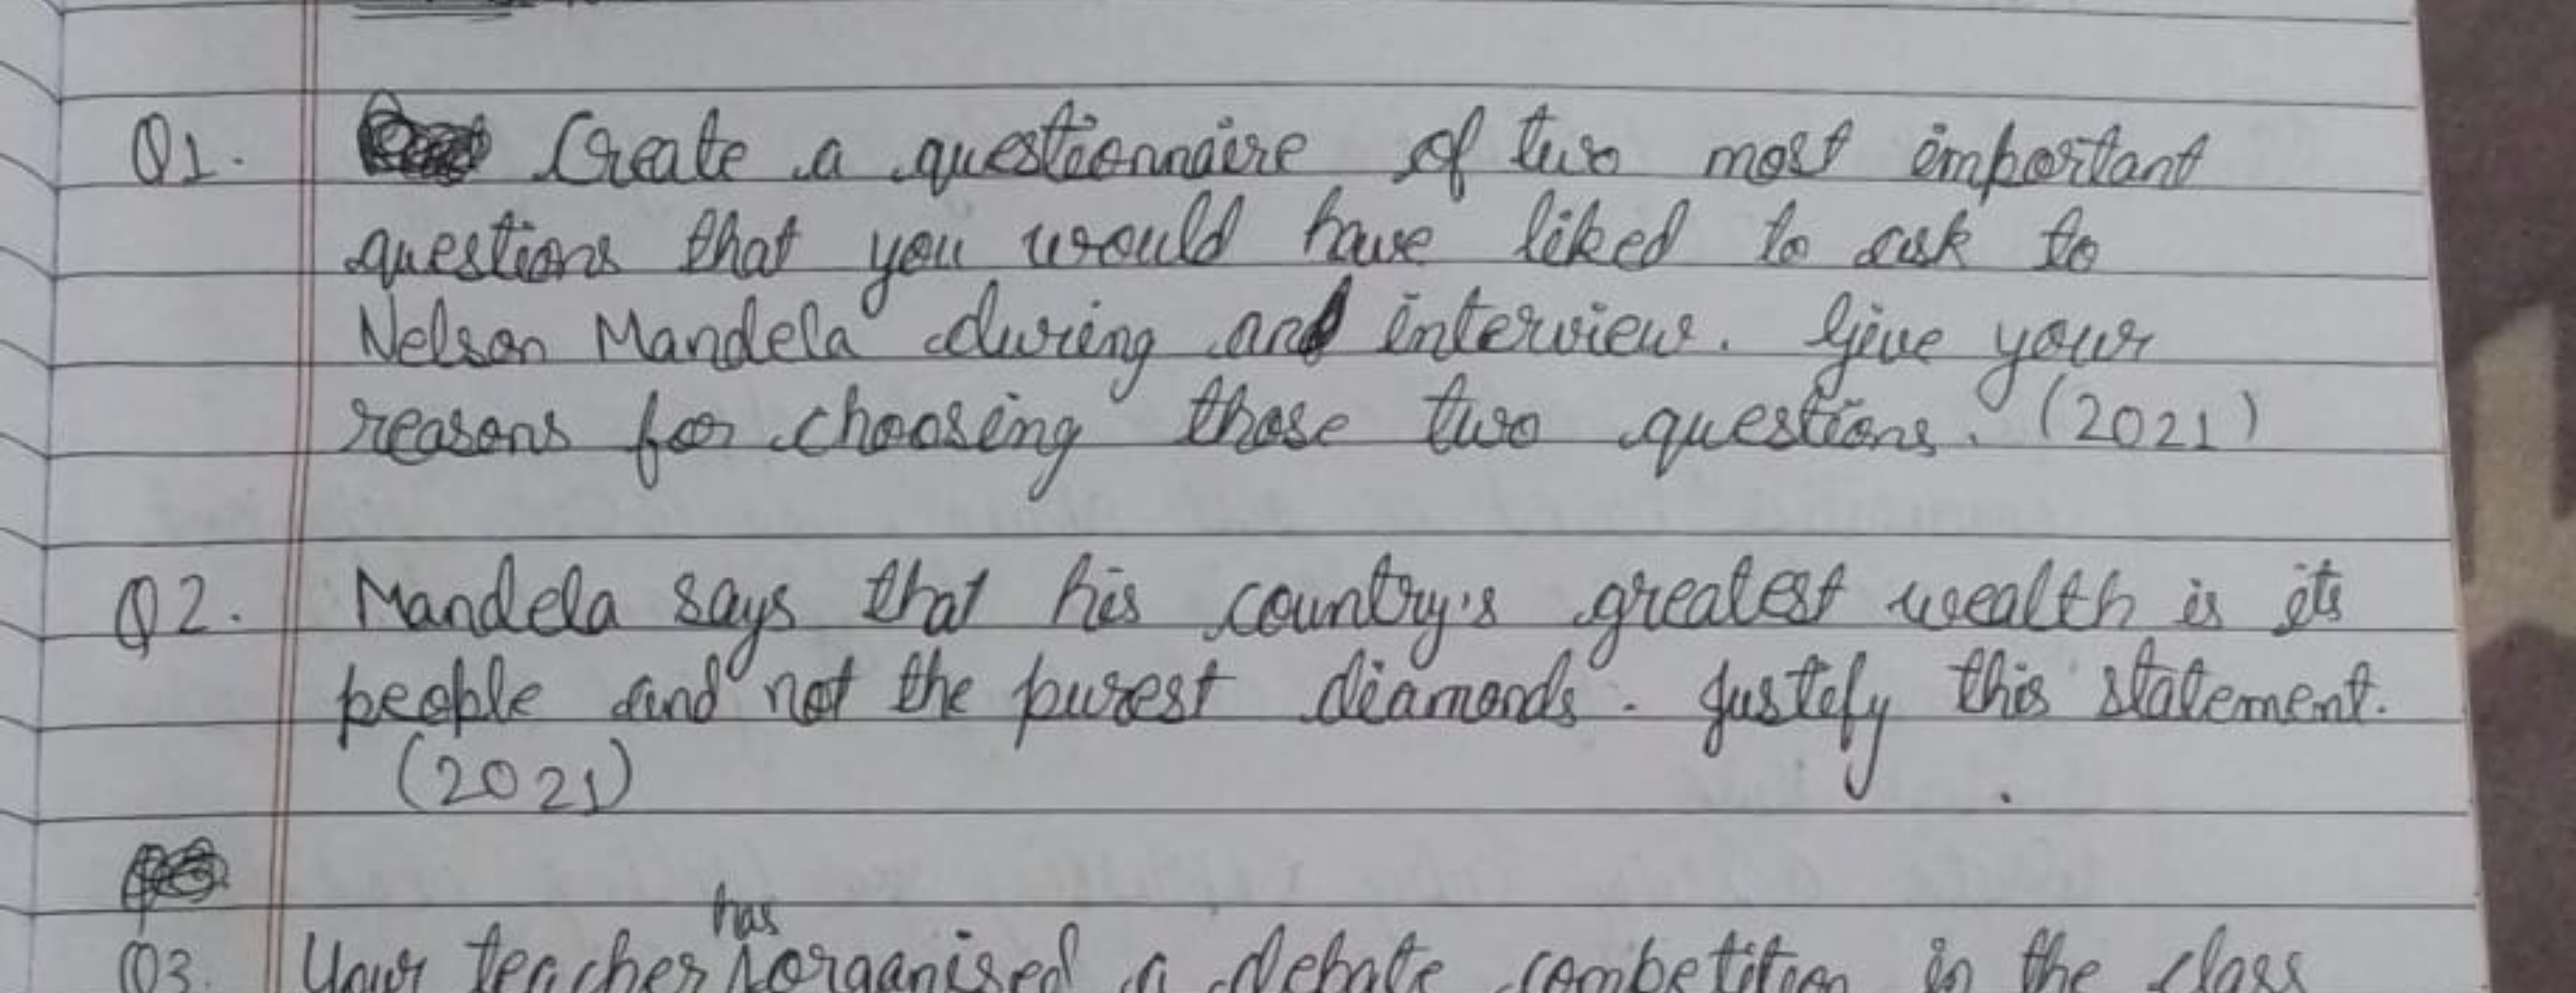 Q1. Create a questionnaire of two most important
questions that you would have liked to ask to
Nelson Mandela during and interview. Give your
reasons for choosing those two questions. (2021)
Q2. Mandela says that his country's greatest wealth is its
people and not the purest diamonds. Justify this statement.
(2021)
has
Q3. Your teacher organised a debate competition in the class